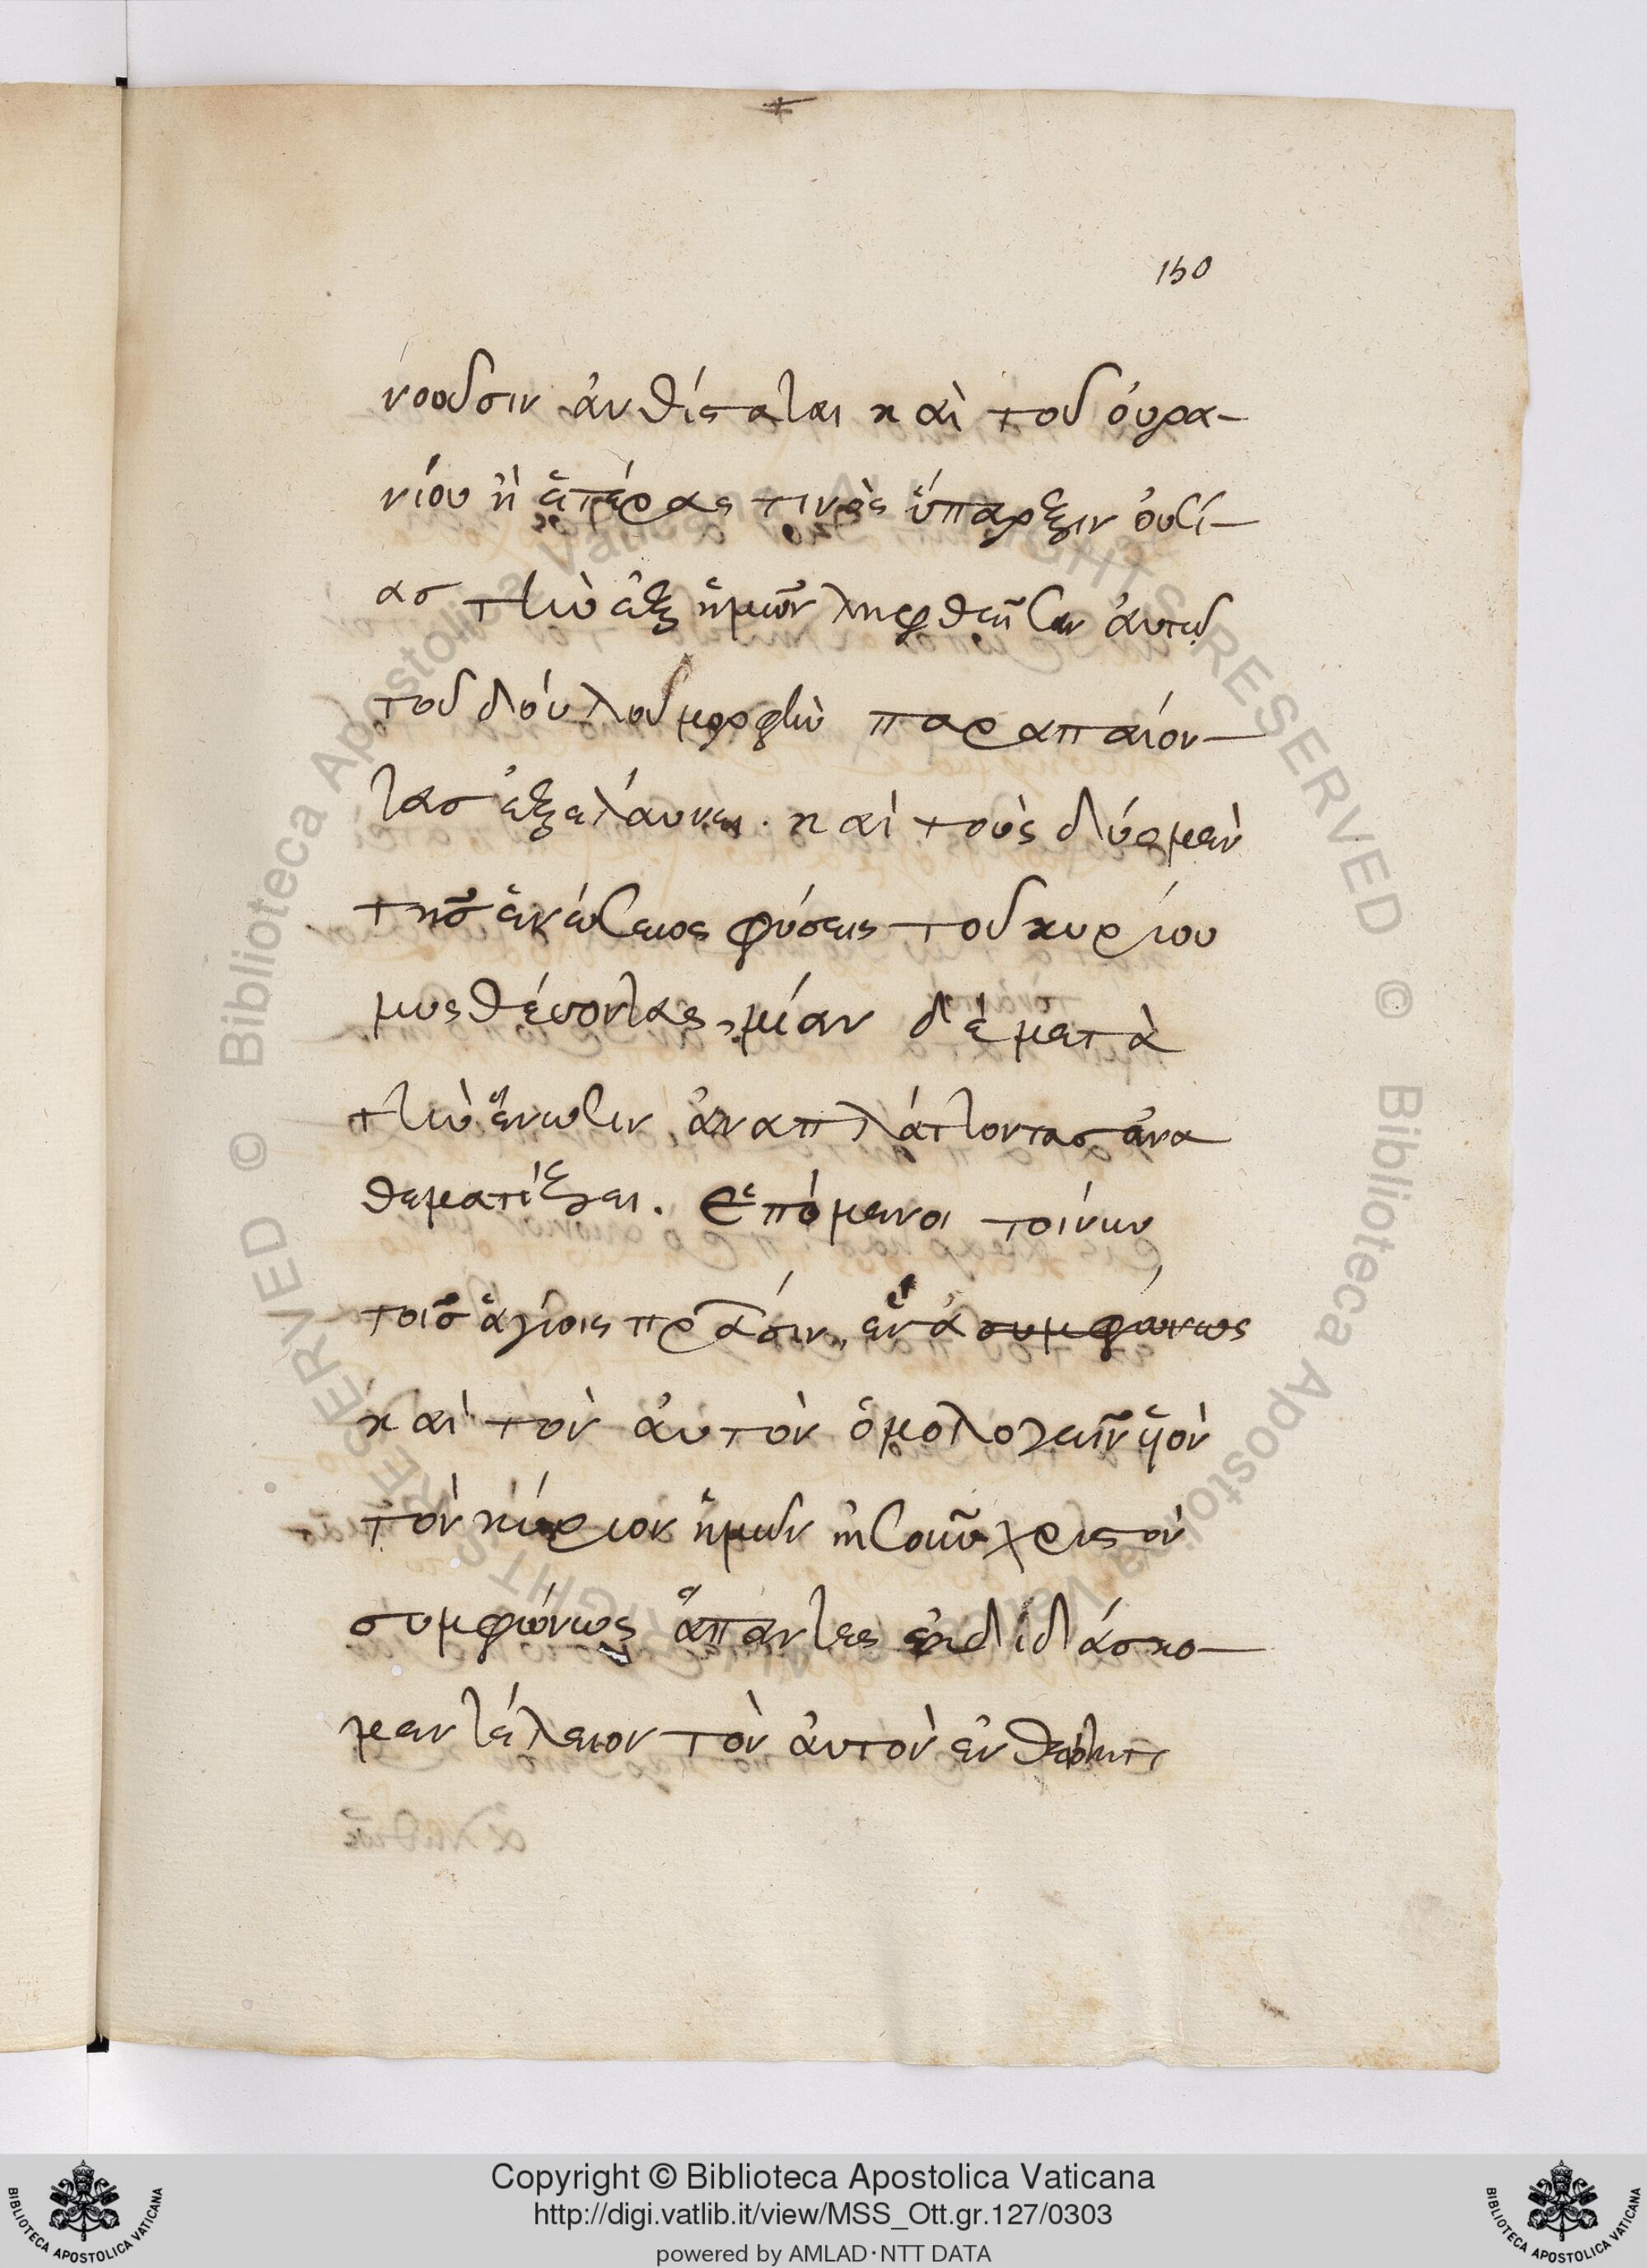 150
νοοῦσιν ἀνθίσταται καὶ τοῦ ὀυρα-
νίου ἢ ἑτέρας τινὸς ὕπαρξιν ὀυσί-
ας τὴν ἐξ ἡμῶν ληφθεῖσαν ἀυτῶ
τοῦ δόυλου μορφὴν παραπαίον-
τας ἐξελάυνει. καὶ τοὺς δύο μὲν
τῆς ἑνώσεως φύσεις τοῦ κυρίου
μυθέυοντας, μίαν δὲ μετὰ
τὴν ἕνωσιν ἀναπλάττοντας ἀνα
θεματίζει. Ἑπόμενοι τοίνυν
τοῖς ἁγίοις πρ̅άσιν, ἕνα συμφώνως
καὶ τὸν ἀυτὸν ὁμολογεῖν ὑὸν
τὸν κύριον ἡμῶν ἰησοῦν χριστὸν
συμφώνως ἅπαντες ἐκδιδάσκο-
μεν τέλειον τὸν ἀυτὸν ἐν θεότητι
Copyright © Biblioteca Apostolica Vaticana
http://digi.vatlib.it/view/MSS_Ott.gr.127/0303
powered by AMLAD·NTT DATA
BIBLIOTECA APOSTOLICA VATICANA
BIBLIOTECA APOSTOLICA VATICANA